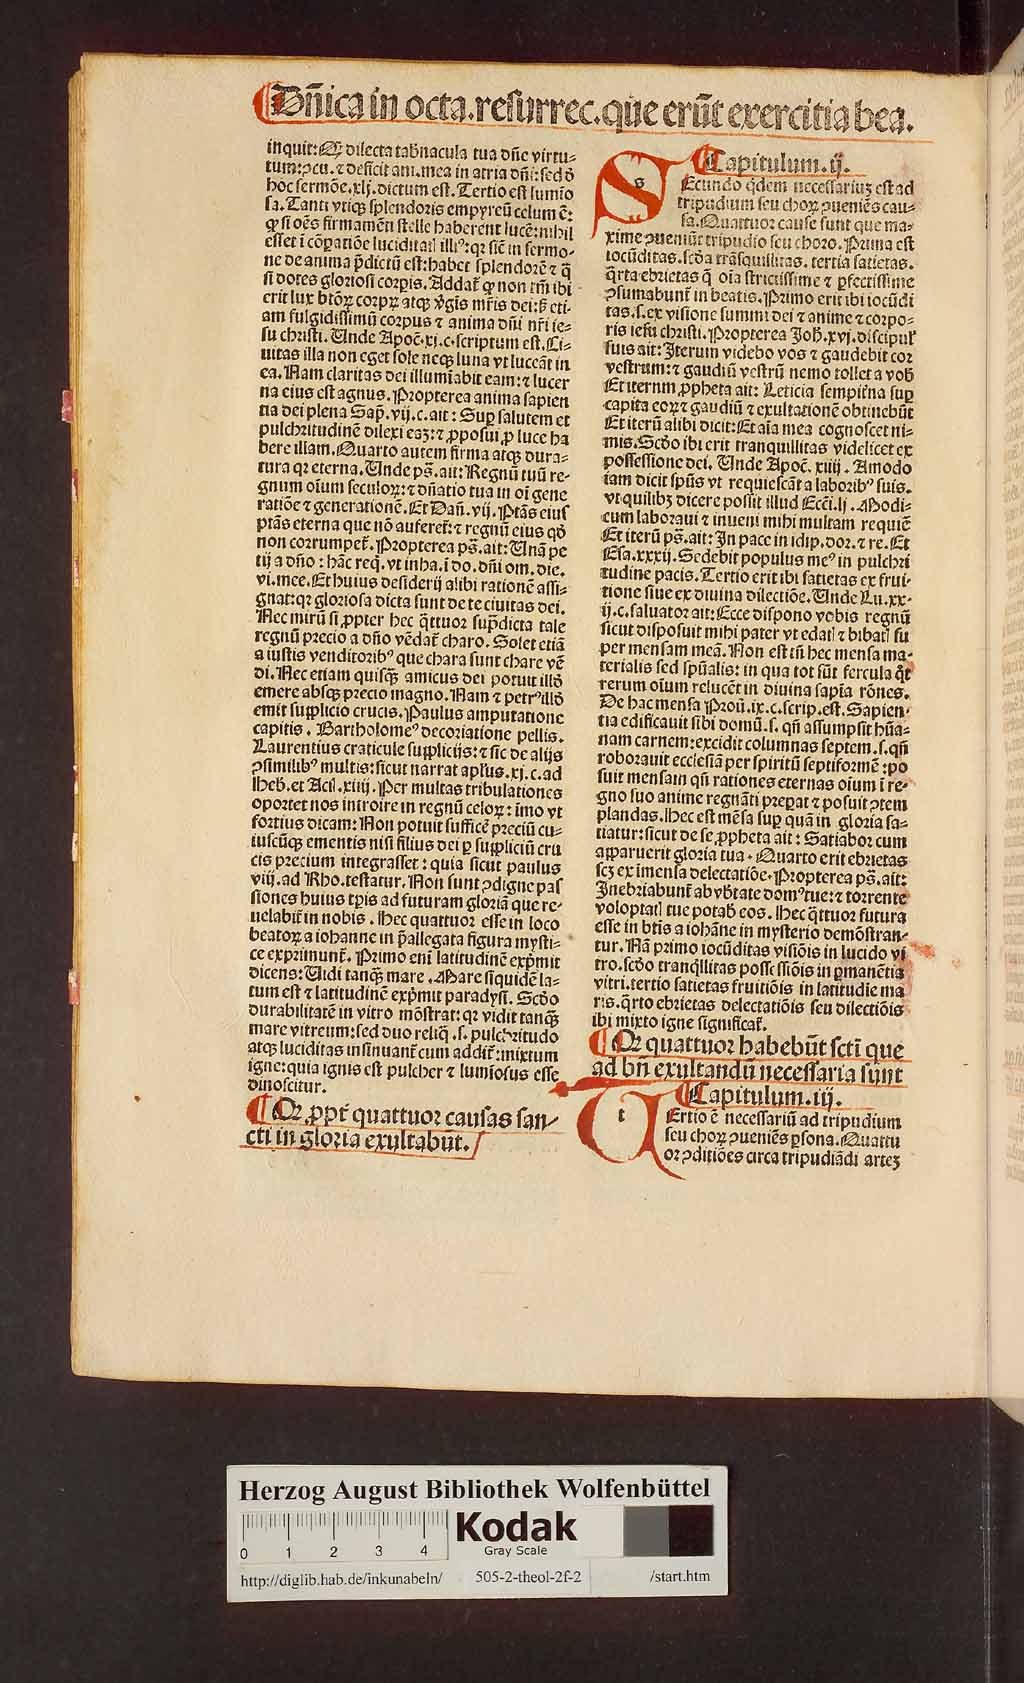 Dñica in octa.resurrec.que erūt exercitia bea.
inquit: Q̄ dilecta tab̄nacula tua dn̄e virtu-
tum:ꝯcu.⁊ deficit ani.mea in atria dn̄i:sed ð
hoc sermōe.xlj.dictum est.Tertio est lumīo
sa.Tanti vtiqꝫ splendoris empyreū celum ē:
ꝙ si oēs firmamēti stelle haberent lucē:nihil
esset ī cōparatiōe luciditatꝭ illiꝰ:qꝛ sic̄ in sermo-
ne de anima p̄dictū est:habet splendorē ⁊ q̄
si dotes gloriosi corpis.Addat̄ ꝙ non tm̄ ibi
erit lux btōꝝ corpꝝ atqꝫ v̄gis mr̄is dei:sꝫ eti-
am fulgidissimū corpus ⁊ anima dn̄i nr̄i ie-
su christi. Unde Apoc̄.xj.c.scriptum est.Ci-
uitas illa non eget sole neqꝫ luna vt luceāt in
ea.Nam claritas dei illumīabit eam:⁊ lucer
na eius est agnus.Propterea anima sapien
tia dei plena Sap̄.vij.c.ait: Suꝑ salutem et
pulchritudinē dilexi eaꝫ:⁊ ꝓposui ꝓ luce ha
bere illam.Quarto autem firma atqꝫ dura-
tura qꝛ eterna.Unde ps̄.ait:Regnū tuū re-
gnum oīum seculoꝝ:⁊ dn̄atio tua in oī gene
ratiōe ⁊ generationē.Et Dan̄.vij.Ptās eiuſ
ptās eterna que nō auferet̄:⁊ regnū eius qð
non corrumpet̄.Propterea ps̄.ait:Unā pe
tij a dn̄o:hāc req̄.vt inha.ī do.dn̄i om.die.
vi.mee.Et huius desiderij alibi rationē assi-
gnat:qꝛ gloriosa dicta sunt de te ciuitas dei.
Nec mirū si ꝓpter hec q̄ttuor sup̄dicta tale
regnū precio a dn̄o vēdat̄ charo.Solet etiā
a iustis venditoribꝰ que chara sunt chare vē
di.Nec etiam quisqꝫ amicus dei potuit illð
emere absqꝫ precio magno.Nam ⁊ petrꝰ illð
emit supplicio crucis.Paulus amputatione
capitis. Bartholomeꝰ decoriatione pellis.
Laurentius craticule supplicijs:⁊ sic de alijs
ꝯsimilibꝰ multis:sicut narrat apl̄us.xj.c.ad
Heb̄.et Actꝭ.xiiij.Per multas tribulationes
oportet nos introire in regnū celoꝝ: īmo vt
fortius dicam:Non potuit sufficē preciū cu-
iuscūqꝫ ementis nisi filius dei ꝑ suppliciū cru
cis precium integrasset: quia sicut paulus
viij.ad Rho.testatur.Non sunt ꝯdigne pas
siones huius tp̄is ad futuram gloriā que re-
uelabit̄ in nobis. Hec quattuor esse in loco
beatoꝝ a iohanne in p̄allegata figura mysti-
ce exprimunt̄. Primo eni latitudinē exp̄mit
dicens:Uidi tanqꝫ mare.Mare siquidē la-
tum est ⁊ latitudinē exp̄mit paradysi. Scðo
durabilitatē in vitro mōstrat:qꝛ vidit tanqꝫ
mare vitreum:sed duo reliq̄.s.pulchritudo
atqꝫ luciditas insinuant̄ cum addit̄:mixtum
igne:quia ignis est pulcher ⁊ lumīosus esse
dinoscitur.
Qꝛ ꝓpt̄ quattuor causas san-
cti in gloria exultabūt.
Capitulum.ij.
Secundo q̄dem necessariuꝫ est ad
tripudium seu choꝝ ꝯueniēs cau-
sa.Quattuor cause sunt que ma-
xime ꝯueniūt tripudio seu choro.Prima est
iocūditas.scða trāsquillitas.tertia satietas.
q̄rta ebrietas q̄ oīa strictissime ⁊ ꝑfectissime
ꝯsumabunt̄ in beatis.Primo erit ibi iocūdi
tas.s.ex visione summi dei ⁊ anime ⁊ corpo-
ris iesu christi.Propterea Joh̄.xvj.discipulꝭ
suis ait:Iterum videbo vos ⁊ gaudebit cor
vestrum:⁊ gaudiū vestrū nemo tollet a vob̄
Et iterum ꝓpheta ait: Leticia sempit̄na suꝑ
capita eoꝝ ⁊ gaudiū ⁊ exultationē obtinebūt
Et iterū alibi dicit:Et aīa mea cognoscet ni-
mis.Scðo ibi erit tranquillitas videlicet ex
possessione dei. Unde Apoc̄. xiiij. Amodo
iam dicit spūs vt requiescāt a laboribꝰ suis.
vt quilibꝫ dicere possit illud Ecci.lj.Modi-
cum laboraui ⁊ inueni mihi multam requiē
Et iterū ps̄.ait:In pace in idip.dor.⁊ re.Et
Esa.xxxij.Sedebit populus meꝰ in pulchri
tudine pacis.Tertio erit ibi satietas ex frui-
tione siue ex diuina dilectiōe.Unde Lu.xx-
ij.c.saluator ait:Ecce dispono vobis regnū
sicut disposuit mihi pater vt edatꝭ ⁊ bibatꝭ su
per mensam meā.Non est tn̄ hec mensa ma-
terialis sed spūalis: in qua tot sūt fercula q̄t
rerum oīum relucēt in diuina sapīa rōnes.
De hac mensa Prou̇.ix.c.scrip.est.Sapien-
tia edificauit sibi domū.s.qn̄ assumpsit hūa-
nam carnem:excidit columnas septem.s.qn̄
roborauit ecclesiā per spiritū septiformē:po
suit mensam qn̄ rationes eternas oīum ī re-
gno suo anime regnāti prep̄at ⁊ posuit ꝯtem
plandas.Hec est mēsa suꝑ quā in gloria sa-
tiatur:sicut de se ꝓpheta ait: Satiabor cum
apparuerit gloria tua. Quarto erit ebrietas
scꝫ ex īmensa delectatiōe.Propterea ps̄.ait:
Inebriabunt̄ ab vb̄tate domꝰ tue:⁊ torrente
voluptatꝭ tue potab̄ eos. Hec q̄ttuor futura
esse in btīs a iohāne in mysterio demōstran-
tur.Nā primo iocūditas visiōis in lucido vi
tro.scðo tranq̇llitas possessiōis in ꝑmanētia
vitri.tertio satietas fruitiōis in latitudie ma
ris.q̄rto ebrietas delectatiōis seu dilectiōis
ibi mixto igne significat̄.
Qꝛ quattuor habebūt sctī que
ad bn̄ exultandū necessaria sunt
Capitulum.iij.
Tertio ē necessariū ad tripudium
seu choꝝ ꝯueniēs ꝑsona.Quattu
or ꝯditiōes circa tripudiādi arteꝫ
Herzog August Bibliothek Wolfenbüttel
0 1 2 3 4
Kodak
Gray Scale
http://diglib.hab.de/inkunabeln/ 505-2-theol-2f-2 /start.htm